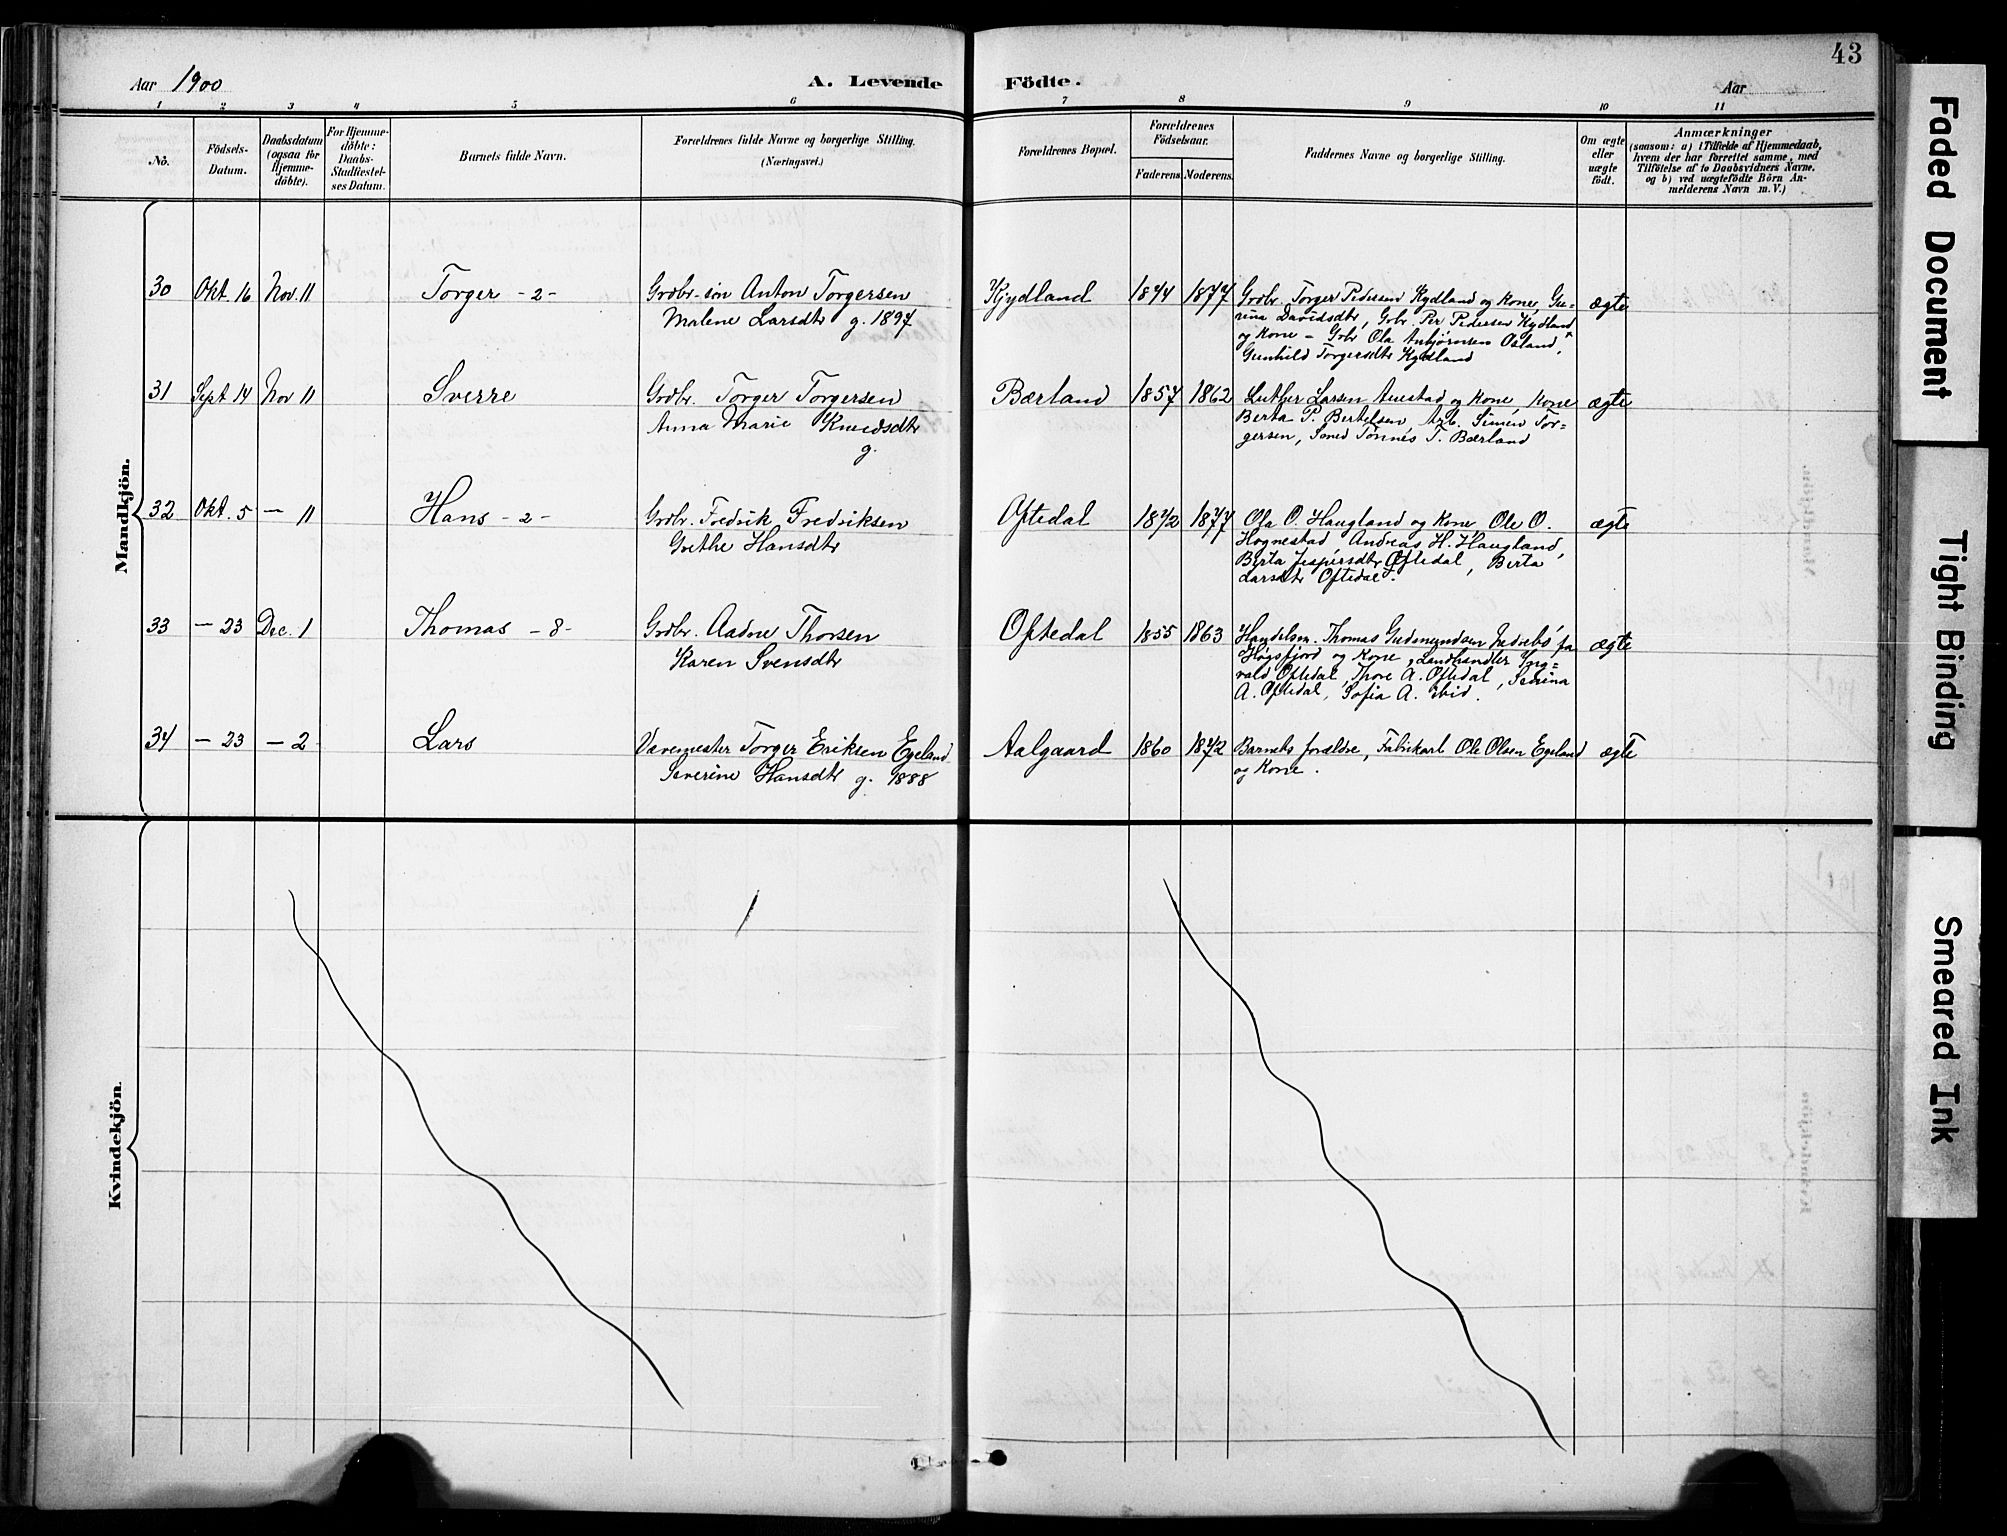 43
Aar 1900
A. Levende
Födte.
Aar
1 2 3 4 5 6 7 8 9 10 11
No.
Födsels-
Datum.
Daabsdatum
(ogsaa for
Hjemme-
döbte).
For Hjemme-
döbte:
Daabs-
Stadfæstel-
ses Datum.
Barnets fulde Navn.
Forældrenes fulde Navne og borgerlige Stilling.
(Næringsvei.)
Forældrenes Bopæl.
Forældrenes
Födselsaar.
Faderens.
Moderens.
Faddernes Navne og borgerlige Stilling.
Om ægte
eller
uægte
födt.
Anmærkninger
(saasom: a) i Tilfælde af Hjemmedaab,
hvem der har forrettet samme, med
Tilföielse af to Daabsvidners Navne,
og b) ved uægtefödte Börn An-
melderens Navn m. V.)
Mandkjön.
30 Okt. 16 Nov. 11 Torger - 2 -
Grdbr.-søn Anton Torgersen
Malene Larsdtr g. 1897
Kydland 1874 1877
Grdbr. Torger Pedersen Kydland og Kone, Gu=
rina Davidsdtr, Gbr. Per Pedersen Kydland
og Kone - Gbr Ola Asbjørnsen Osland,
Gunhild Torgersdtr Kydland
ægte
31 Sept 14 Nov 11 Sverre
Grdbr. Torger Torgersen
Anna Marie Knudsdtr
g.
Bærland 1857 1862
Luther Larsen Auestad og Kone, Kone
Berta P. Bertelsen, Arb. Simen Tor=
gersen, Smed Tønnes T. Bærland
ægte
32 Okt. 5 — 11 Hans - 2 -
Grdbr. Fredrik Fredriksen
Grethe Hansdtr
Oftedal 1872 1877
Ola O. Haugland og Kone, Ole O.
Hognestad Andreas H. Haugland,
Berta Jespersdtr Oftedal, Berta
Larsdtr Oftedal.
ægte
33 — 23 Dec. 1 Thomas - 8 -
Grdbr. Aadne Thorsen
Karen Svensdtr
Oftedal 1855 1863
Handelsm. Thomas Gudmundsen Nedrebø fra
Høgsfjord og Kone, Landhandler Ing=
vald Oftedal, Thore A. Oftedal, Serina
A. Oftedal, Sofia A. ibid.
ægte
34 — 23 — 2 Lars
Vævemester Torger Eriksen Egeland
Severine Hansdtr g. 1888
Aalgaard 1860 1872
Barnets forældre, Fabrikarb Ole Olsen Egeland
og Kone.
ægte
Kvindekjön.
Faded Document
Tight Binding
Smeared Ink